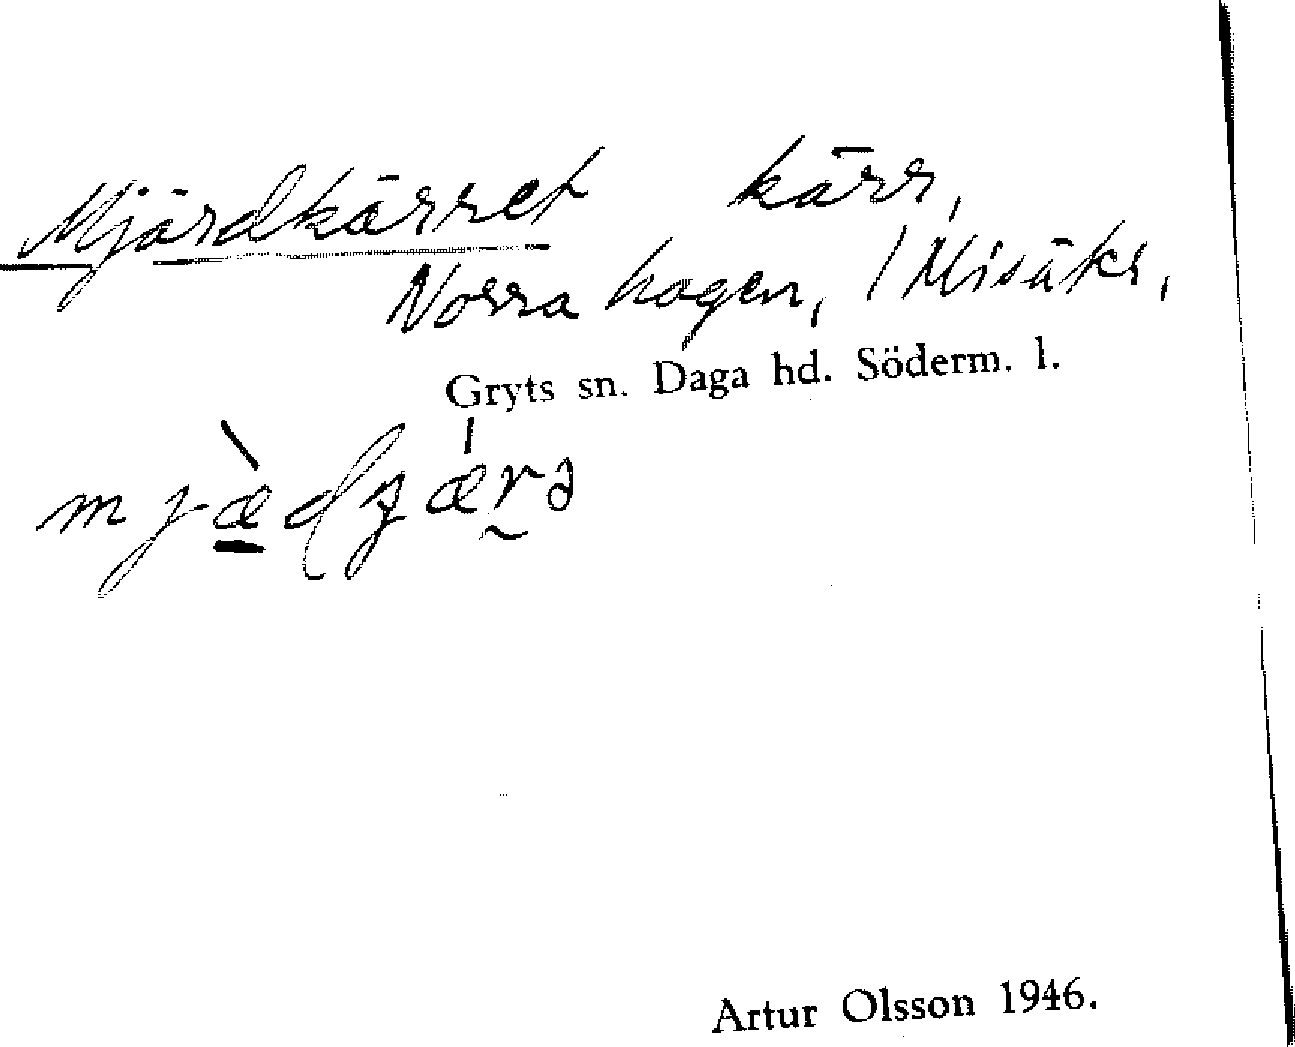 Mjärdkärret kärr,
Norra hagen,
Gryts sn. Daga hd. Söderm. l.
Artur Olsson 1946.